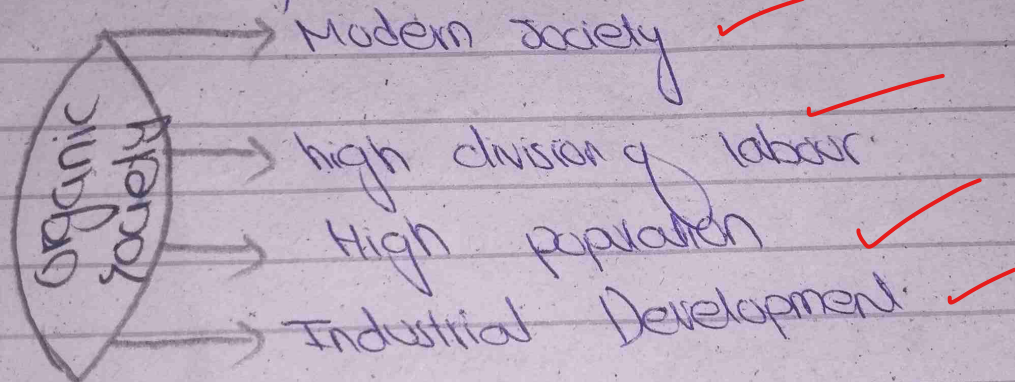 organic
society
Modern society
high division of labour.
High population
Industrial Development.